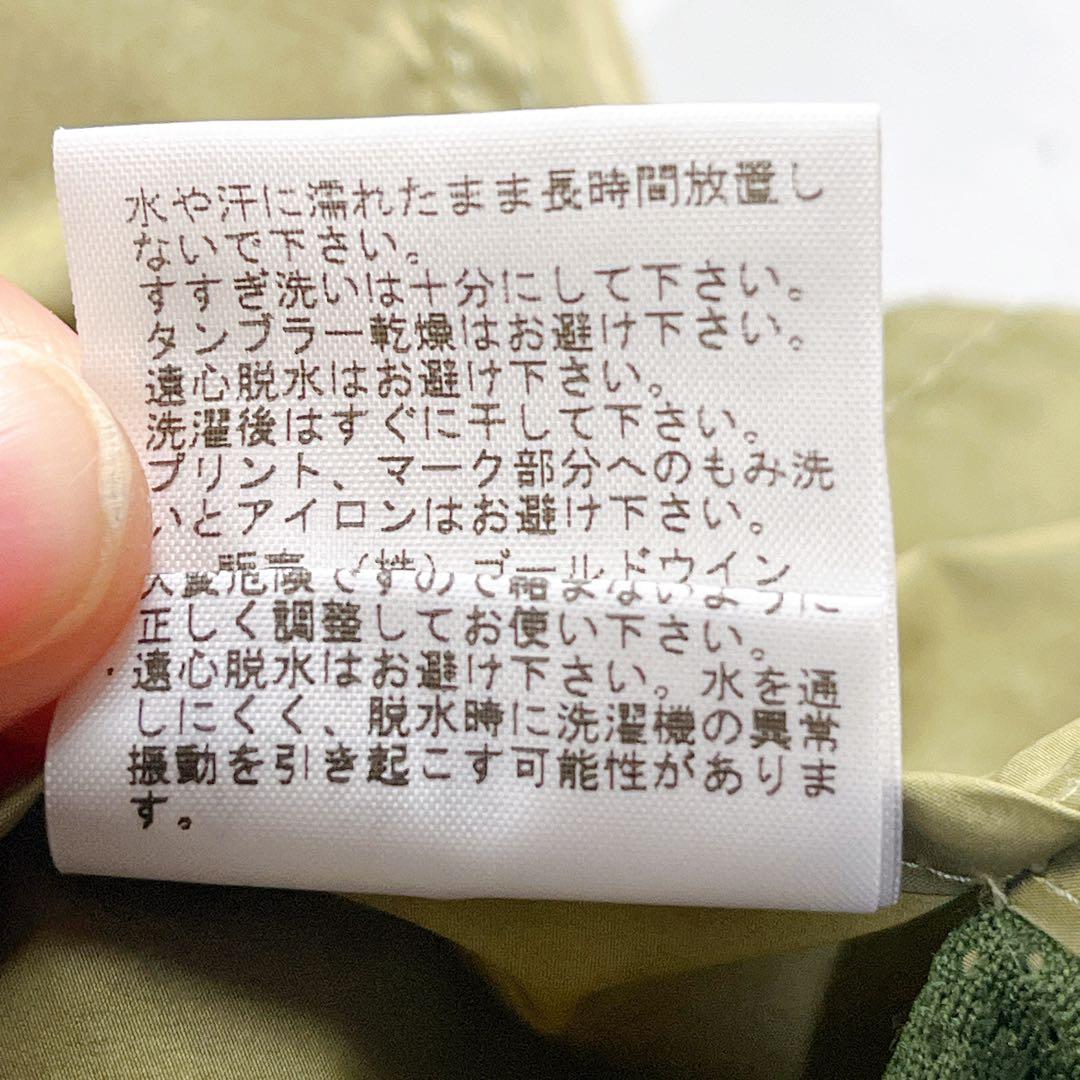 水や汗に濡れたまま長時間放置し
ないで下さい。
すすぎ洗いは十分にして下さい。
タンブラー乾燥はお避け下さい。
遠心脱水はお避け下さい。
洗濯後はすぐに干して下さい。
プリント、マーク部分へのもみ洗
いとアイロンはお避け下さい。
(株)ゴールドウイン
危険ですので絡まないように
正しく調整してお使い下さい。
・遠心脱水はお避け下さい。水を通
しにくく、脱水時に洗濯機の異常
振動を引き起こす可能性がありま
す。